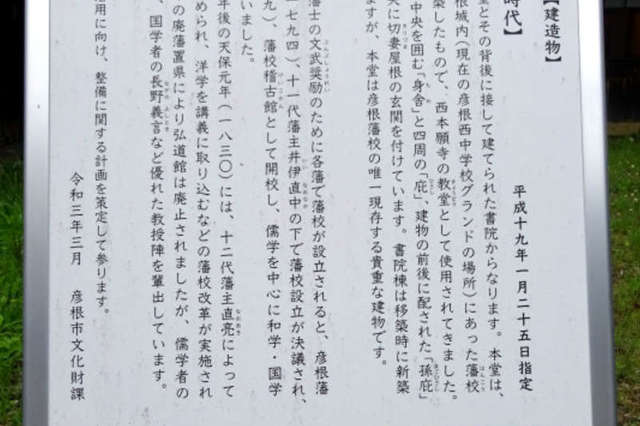 【建造物】
時代】
平成十九年一月二十五日指定
堂とその背後に接して建てられた書院からなります。本堂は、
根城内(現在の彦根西中学校グランドの場所)にあった藩校
築したもので、西本願寺の教堂として使用されてきました。
中央を囲む「身舎」と四周の「庇」、建物の前後に配された「孫庇」
に切妻屋根の玄関を付けています。書院棟は移築時に新築
ますが、本堂は彦根藩校の唯一現存する貴重な建物です。
藩士の文武奨励のために各藩で藩校が設立されると、彦根藩
七九四)、十一代藩主井伊直中の下で藩校設立が決議され、
九)、藩校稽古館として開校し、儒学を中心に和学・国学
いました。
年後の天保元年(一八三〇)には、十二代藩主直亮によって
められ、洋学を講義に取り込むなどの藩校改革が実施され
の廃藩置県により弘道館は廃止されましたが、儒学者の
、国学者の長野義言など優れた教授陣を輩出しています。
活用に向け、整備に関する計画を策定して参ります。
令和三年三月 彦根市文化財課